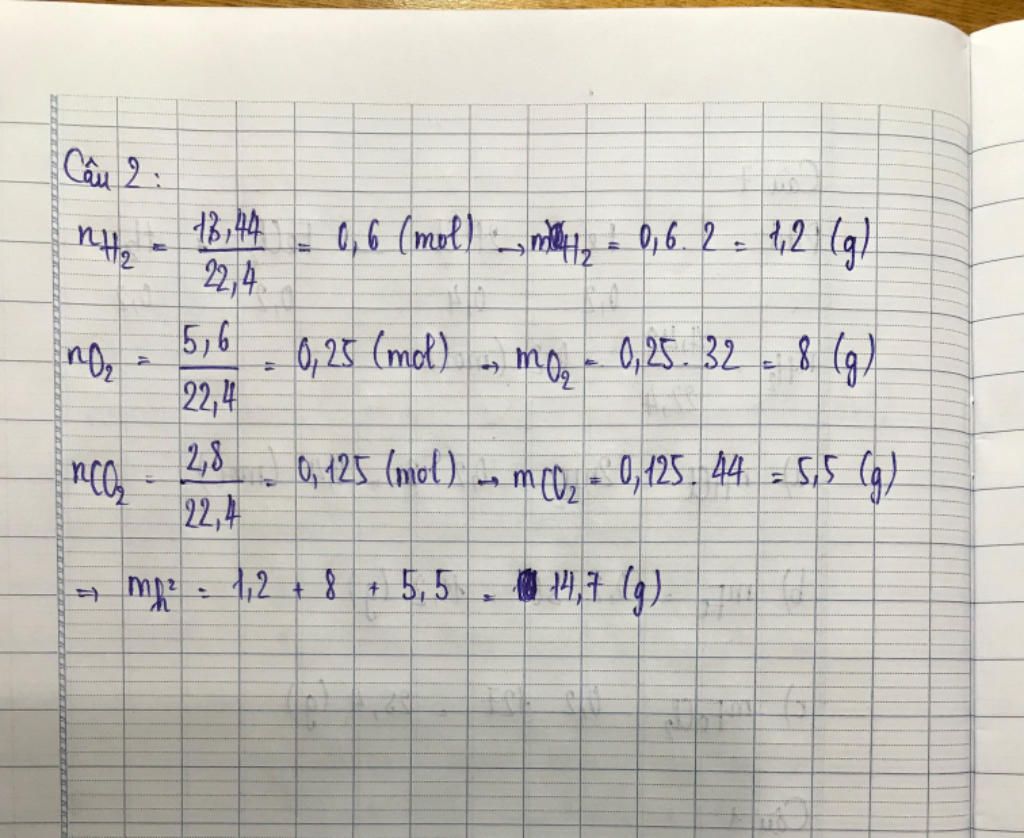 Câu 2 :
nH₂ = 13,44 / 22,4 = 0,6 (mol) → mH₂ = 0,6 . 2 = 1,2 (g)
nO₂ = 5,6 / 22,4 = 0,25 (mol) → mO₂ = 0,25 . 32 = 8 (g)
nCO₂ = 2,8 / 22,4 = 0,125 (mol) → mCO₂ = 0,125 . 44 = 5,5 (g)
⇒ m h² = 1,2 + 8 + 5,5 = 14,7 (g)